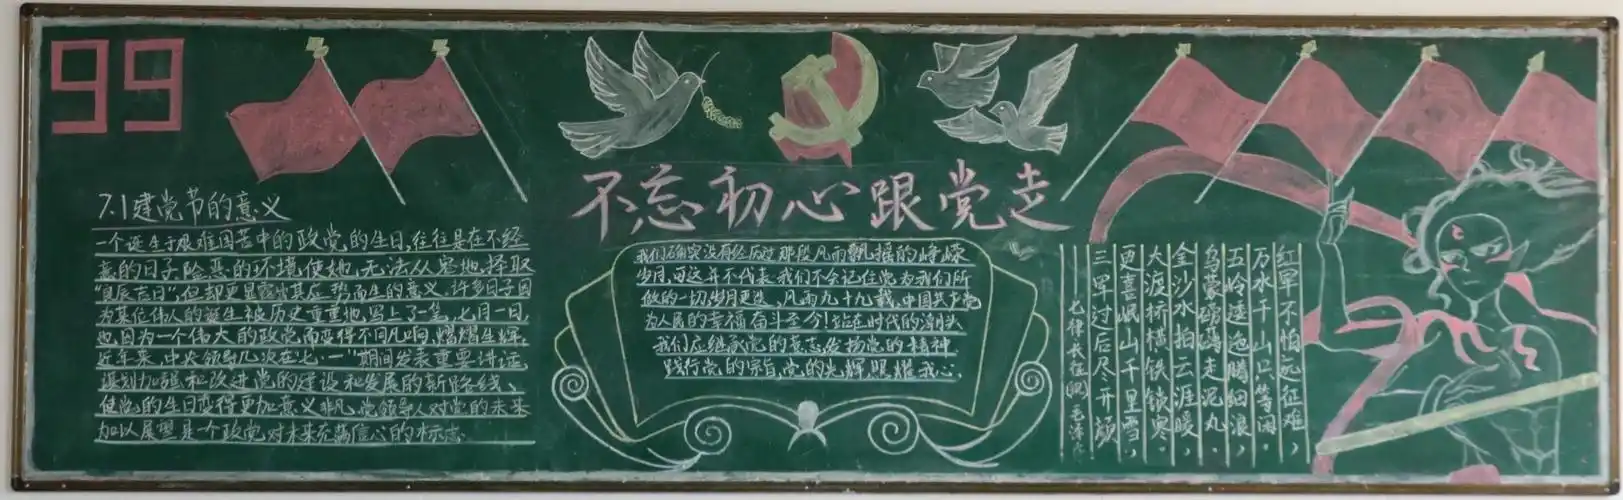 99
不忘初心跟党走
7.1建党节的意义
一个诞生于艰难困苦中的政党的生日,往往是在不经
意的日子险恶的环境使她,无法从容地择取
"良辰吉日",但却更显露出其应势而生的意义,许多日子因
为某位伟人的诞生被历史重重地写上了一笔,七月一日,
也因为一个伟大的政党而变得不同凡响,熠熠生辉,
近年来,中央领导几次在七·一"期间发表重要讲话,
谋划加强和改进党的建设和发展的新路线、
使党的生日变得更加意义非凡,党领导人对党的未来
加以展望是一个政党对未来充满信心的标志
我们确实没有经历过那段风雨飘摇的峥嵘
岁月,可这并不代表我们不会记住党为我们所
做的一切岁月更迭、风雨九十九载,中国共产党
为人民的幸福奋斗至今!站在时代的潮头
我们应继承党的意志发扬党的精神
践行党的宗旨,党的光辉照耀我心,
红军不怕远征难,
万水千山只等闲。
五岭逶迤腾细浪,
乌蒙磅礴走泥丸。
金沙水拍云崖暖,
大渡桥横铁锁寒。
更喜岷山千里雪,
三军过后尽开颜
七律·长征 毛泽东